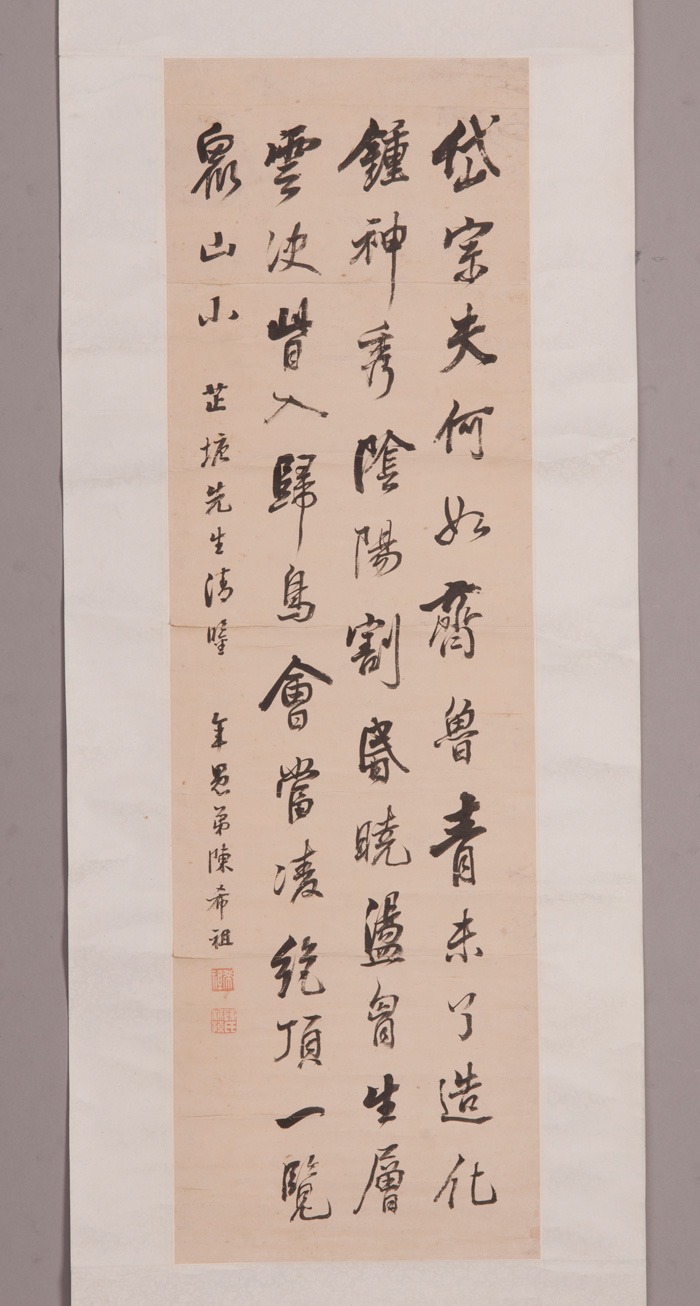 岱宗夫何如齊魯青未了造化
鍾神秀陰陽割昏曉盪胷生層
雲決眥入歸鳥會當凌絕頂一覽
衆山小 芷塘先生清 年愚弟陳希祖